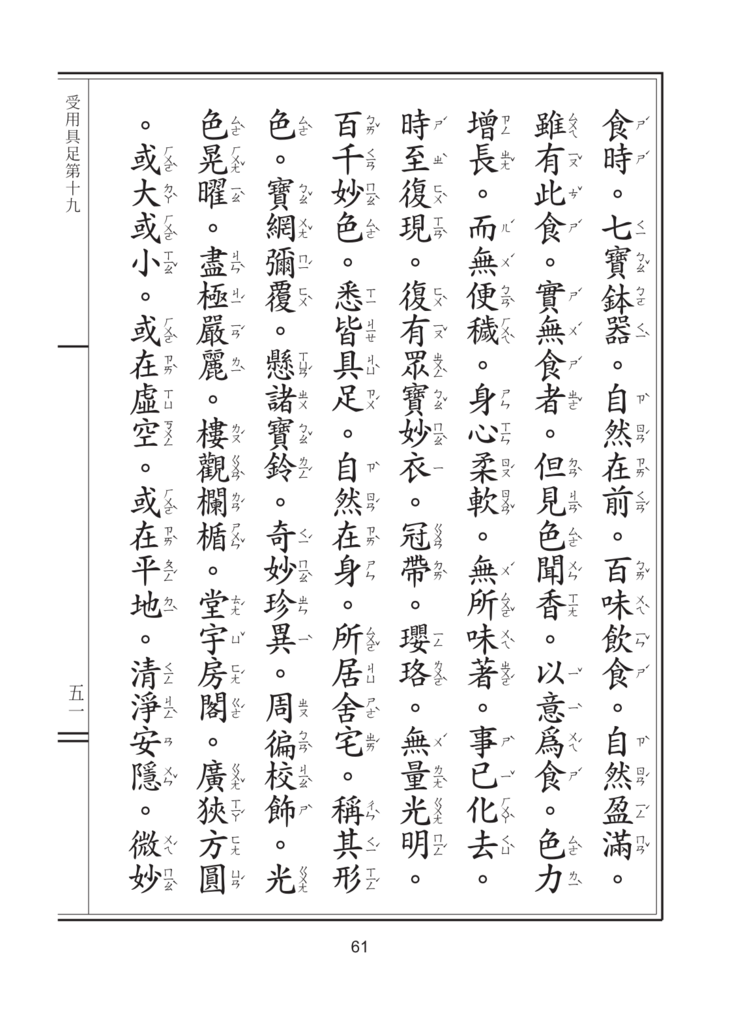 食時。七寶鉢器。自然在前。百味飲食。自然盈滿。
雖有此食。實無食者。但見色聞香。以意爲食。色力
增長。而無便穢。身心柔軟。無所味著。事已化去。
時至復現。復有眾寶妙衣。冠帶。瓔珞。無量光明。
百千妙色。悉皆具足。自然在身。所居舍宅。稱其形
色。寶網彌覆。懸諸寶鈴。奇妙珍異。周徧校飾。光
色晃曜。盡極嚴麗。樓觀欄楯。堂宇房閣。廣狹方圓
。或大或小。或在虛空。或在平地。清淨安隱。微妙
受用具足第十九
五一
61